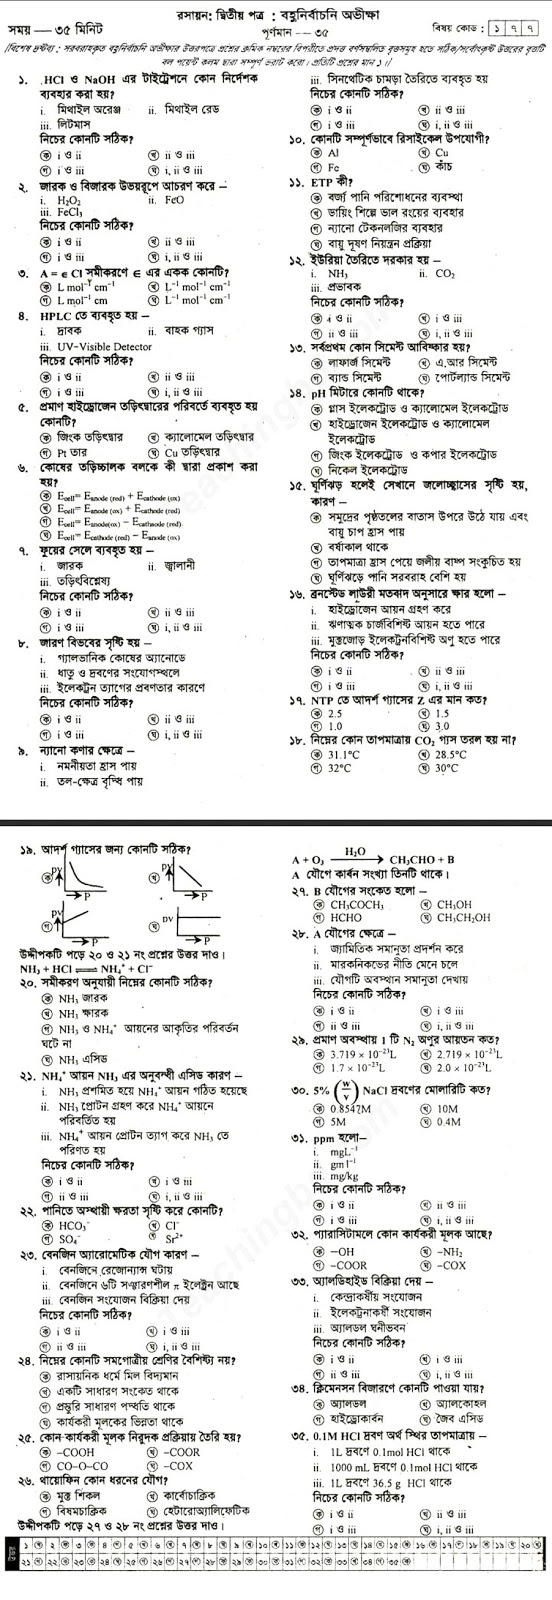 রসায়ন: দ্বিতীয় পত্র : বহুনির্বাচনি অভীক্ষা
সময় — ৩৫ মিনিট
পূর্ণমান — ৩৫
বিষয় কোড : ১ ৭ ৭
[বিশেষ দ্রষ্টব্য : সরবরাহকৃত বহুনির্বাচনি অভীক্ষার উত্তরপত্রে প্রশ্নের ক্রমিক নম্বরের বিপরীতে প্রদত্ত বর্ণসম্বলিত বৃত্তসমূহ হতে সঠিক/সর্বোৎকৃষ্ট উত্তরের বৃত্তটি
বল পয়েন্ট কলম দ্বারা সম্পূর্ণ ভরাট করো। প্রতিটি প্রশ্নের মান ১।]
১. HCl ও NaOH এর টাইট্রেশনে কোন নির্দেশক
ব্যবহার করা হয়?
i. মিথাইল অরেঞ্জ ii. মিথাইল রেড
iii. লিটমাস
নিচের কোনটি সঠিক?
ক i ও ii খ ii ও iii
গ i ও iii ঘ i, ii ও iii
২. জারক ও বিজারক উভয়রূপে আচরণ করে —
i. H₂O₂ ii. FeO
iii. FeCl₃
নিচের কোনটি সঠিক?
ক i ও ii খ ii ও iii
গ i ও iii ঘ i, ii ও iii
৩. A = ϵ Cl সমীকরণে ∈ এর একক কোনটি?
ক L mol⁻¹ cm⁻¹ খ L⁻¹ mol⁻¹ cm⁻¹
গ L mol⁻¹ cm ঘ L⁻¹ mol⁻¹ cm⁻¹
৪. HPLC তে ব্যবহৃত হয় —
i. দ্রাবক ii. বাহক গ্যাস
iii. UV-Visible Detector
নিচের কোনটি সঠিক?
ক i ও ii খ ii ও iii
গ i ও iii ঘ i, ii ও iii
৫. প্রমাণ হাইড্রোজেন তড়িৎদ্বারের পরিবর্তে ব্যবহৃত হয়
কোনটি?
ক জিংক তড়িৎদ্বার খ ক্যালোমেল তড়িৎদ্বার
গ Pt তার ঘ Cu তড়িৎদ্বার
৬. কোষের তড়িচ্চালক বলকে কী দ্বারা প্রকাশ করা
হয়?
ক E cell = E anode (red) + E cathode (ox)
খ E cell = E anode (ox) + E cathode (red)
গ E cell = E anode(ox) − E cathode (red)
ঘ E cell = E cathode (red) − E anode (ox)
৭. ফুয়েল সেলে ব্যবহৃত হয় —
i. জারক ii. জ্বালানী
iii. তড়িৎবিশ্লেষ্য
নিচের কোনটি সঠিক?
ক i ও ii খ ii ও iii
গ i ও iii ঘ i, ii ও iii
৮. জারণ বিভবের সৃষ্টি হয় —
i. গ্যালভানিক কোষের অ্যানোডে
ii. ধাতু ও দ্রবণের সংযোগস্থলে
iii. ইলেকট্রন ত্যাগের প্রবণতার কারণে
নিচের কোনটি সঠিক?
ক i ও ii খ ii ও iii
গ i ও iii ঘ i, ii ও iii
৯. ন্যানো কণার ক্ষেত্রে —
i. নমনীয়তা হ্রাস পায়
ii. তল-ক্ষেত্র বৃদ্ধি পায়
iii. সিনথেটিক চামড়া তৈরিতে ব্যবহৃত হয়
নিচের কোনটি সঠিক?
ক i ও ii খ ii ও iii
গ i ও iii ঘ i, ii ও iii
১০. কোনটি সম্পূর্ণভাবে রিসাইকেল উপযোগী?
ক Al খ Cu
গ Fe ঘ কাঁচ
১১. ETP কী?
ক বর্জ্য পানি পরিশোধনের ব্যবস্থা
খ ডায়িং শিল্পে ভাল রংয়ের ব্যবহার
গ ন্যানো টেকনলজির ব্যবহার
ঘ বায়ু দূষণ নিয়ন্ত্রন প্রক্রিয়া
১২. ইউরিয়া তৈরিতে দরকার হয় —
i. NH₃ ii. CO₂
iii. প্রভাবক
নিচের কোনটি সঠিক?
ক i ও ii খ i ও iii
গ ii ও iii ঘ i, ii ও iii
১৩. সর্বপ্রথম কোন সিমেন্ট আবিষ্কার হয়?
ক লাফার্জ সিমেন্ট খ এ.আর সিমেন্ট
গ ব্যান্ড সিমেন্ট ঘ পোর্টল্যান্ড সিমেন্ট
১৪. pH মিটারে কোনটি থাকে?
ক গ্লাস ইলেকট্রোড ও ক্যালোমেল ইলেকট্রোড
খ হাইড্রোজেন ইলেকট্রোড ও ক্যালোমেল
ইলেকট্রোড
গ জিংক ইলেকট্রোড ও কপার ইলেকট্রোড
ঘ নিকেল ইলেকট্রোড
১৫. ঘূর্ণিঝড় হলেই সেখানে জলোচ্ছ্বাসের সৃষ্টি হয়,
কারণ —
ক সমুদ্রের পৃষ্ঠতলের বাতাস উপরে উঠে যায় এবং
বায়ু চাপ হ্রাস পায়
খ বর্ষাকাল থাকে
গ তাপমাত্রা হ্রাস পেয়ে জলীয় বাষ্প সংকুচিত হয়
ঘ ঘূর্ণিঝড়ে পানি সরবরাহ বেশি হয়
১৬. ব্রনস্টেড লাউরী মতবাদ অনুসারে ক্ষার হলো —
i. হাইড্রোজেন আয়ন গ্রহণ করে
ii. ঋণাত্মক চার্জবিশিষ্ট আয়ন হতে পারে
iii. মুক্তজোড় ইলেকট্রনবিশিষ্ট অণু হতে পারে
নিচের কোনটি সঠিক?
ক i ও ii খ ii ও iii
গ i ও iii ঘ i, ii ও iii
১৭. NTP তে আদর্শ গ্যাসের Z এর মান কত?
ক 2.5 খ 1.5
গ 1.0 ঘ 3.0
১৮. নিম্নের কোন তাপমাত্রায় CO₂ গ্যাস তরল হয় না?
ক 31.1°C খ 28.5°C
গ 32°C ঘ 30°C
১৯. আদর্শ গ্যাসের জন্য কোনটি সঠিক?
ক PV P খ PV P
গ PV P ঘ PV P
উদ্দীপকটি পড়ে ২০ ও ২১ নং প্রশ্নের উত্তর দাও।
NH₃ + HCl ⇌ NH₄⁺ + Cl⁻
২০. সমীকরণ অনুযায়ী নিম্নের কোনটি সঠিক?
ক NH₃ জারক
খ NH₃ ক্ষারক
গ NH₃ ও NH₄⁺ আয়নের আকৃতির পরিবর্তন
ঘটে না
ঘ NH₃ এসিড
২১. NH₄⁺ আয়ন NH₃ এর অনুবন্ধী এসিড কারণ —
i. NH₃ প্রশমিত হয়ে NH₄⁺ আয়ন গঠিত হয়েছে
ii. NH₃ প্রোটন গ্রহণ করে NH₄⁺ আয়নে
পরিবর্তিত হয়
iii. NH₄⁺ আয়ন প্রোটন ত্যাগ করে NH₃ তে
পরিণত হয়
নিচের কোনটি সঠিক?
ক i ও ii খ i ও iii
গ ii ও iii ঘ i, ii ও iii
২২. পানিতে অস্থায়ী ক্ষরতা সৃষ্টি করে কোনটি?
ক HCO₃⁻ খ Cl⁻
গ SO₄⁻ ঘ Sr²⁺
২৩. বেনজিন অ্যারোমেটিক যৌগ কারণ —
i. বেনজিনে রেজোন্যান্স ঘটায়
ii. বেনজিনে ৬টি সঞ্চারণশীল π ইলেক্ট্রন আছে
iii. বেনজিন সংযোজন বিক্রিয়া দেয়
নিচের কোনটি সঠিক?
ক i ও ii খ i ও iii
গ ii ও iii ঘ i, ii ও iii
২৪. নিম্নের কোনটি সমগোত্রীয় শ্রেণির বৈশিষ্ট্য নয়?
ক রাসায়নিক ধর্মে মিল বিদ্যমান
খ একটি সাধারণ সংকেত থাকে
গ প্রস্তুরি সাধারণ পদ্ধতি থাকে
ঘ কার্যকরী মূলকের ভিন্নতা থাকে
২৫. কোন কার্যকরী মূলক নিরুদক প্রক্রিয়ায় তৈরি হয়?
ক –COOH খ –COOR
গ CO–O–CO ঘ –COX
২৬. থায়োফিন কোন ধরনের যৌগ?
ক মুক্ত শিকল খ কার্বোচাক্রিক
গ বিষমচাক্রিক ঘ হেটারোঅ্যালিফেটিক
উদ্দীপকটি পড়ে ২৭ ও ২৮ নং প্রশ্নের উত্তর দাও।
A + O₃ H₂O → CH₃CHO + B
A যৌগে কার্বন সংখ্যা তিনটি থাকে।
২৭. B যৌগের সংকেত হলো —
ক CH₃COCH₃ খ CH₃OH
গ HCHO ঘ CH₃CH₂OH
২৮. A যৌগের ক্ষেত্রে —
i. জ্যামিতিক সমানুতা প্রদর্শন করে
ii. মারকনিকভের নীতি মেনে চলে
iii. যৌগটি অবস্থান সমানুতা দেখায়
নিচের কোনটি সঠিক?
ক i ও ii খ i ও iii
গ ii ও iii ঘ i, ii ও iii
২৯. প্রমাণ অবস্থায় 1 টি N₂ অণুর আয়তন কত?
ক 3.719 × 10⁻²³L খ 2.719 × 10⁻²³L
গ 1.7 × 10⁻²³L ঘ 2.0 × 10⁻²³L
৩০. 5% (w/v) NaCl দ্রবণের মোলারিটি কত?
ক 0.8547M খ 10M
গ 5M ঘ 0.4M
৩১. ppm হলো—
i. mgL⁻¹
ii. gm l⁻¹
iii. mg/kg
নিচের কোনটি সঠিক?
ক i ও ii খ ii ও iii
গ i ও iii ঘ i, ii ও iii
৩২. প্যারাসিটামলে কোন কার্যকরী মূলক আছে?
ক –OH খ –NH₂
গ –COOR ঘ –COX
৩৩. অ্যালডিহাইড বিক্রিয়া দেয় —
i. কেন্দ্রাকর্ষীয় সংযোজন
ii. ইলেকট্রনাকর্ষী সংযোজন
iii. অ্যালডল ঘনীভবন
নিচের কোনটি সঠিক?
ক i ও ii খ i ও iii
গ ii ও iii ঘ i, ii ও iii
৩৪. ক্লিমেনসন বিজারণে কোনটি পাওয়া যায়?
ক অ্যালডল খ অ্যালকোহল
গ হাইড্রোকার্বন ঘ জৈব এসিড
৩৫. 0.1M HCl দ্রবণ অর্থ স্থির তাপমাত্রায় —
i. 1L দ্রবণে 0.1mol HCl থাকে
ii. 1000 mL দ্রবণে 0.1mol HCl থাকে
iii. 1L দ্রবণে 36.5 g HCl থাকে
নিচের কোনটি সঠিক?
ক i ও ii খ ii ও iii
গ i ও iii ঘ i, ii ও iii